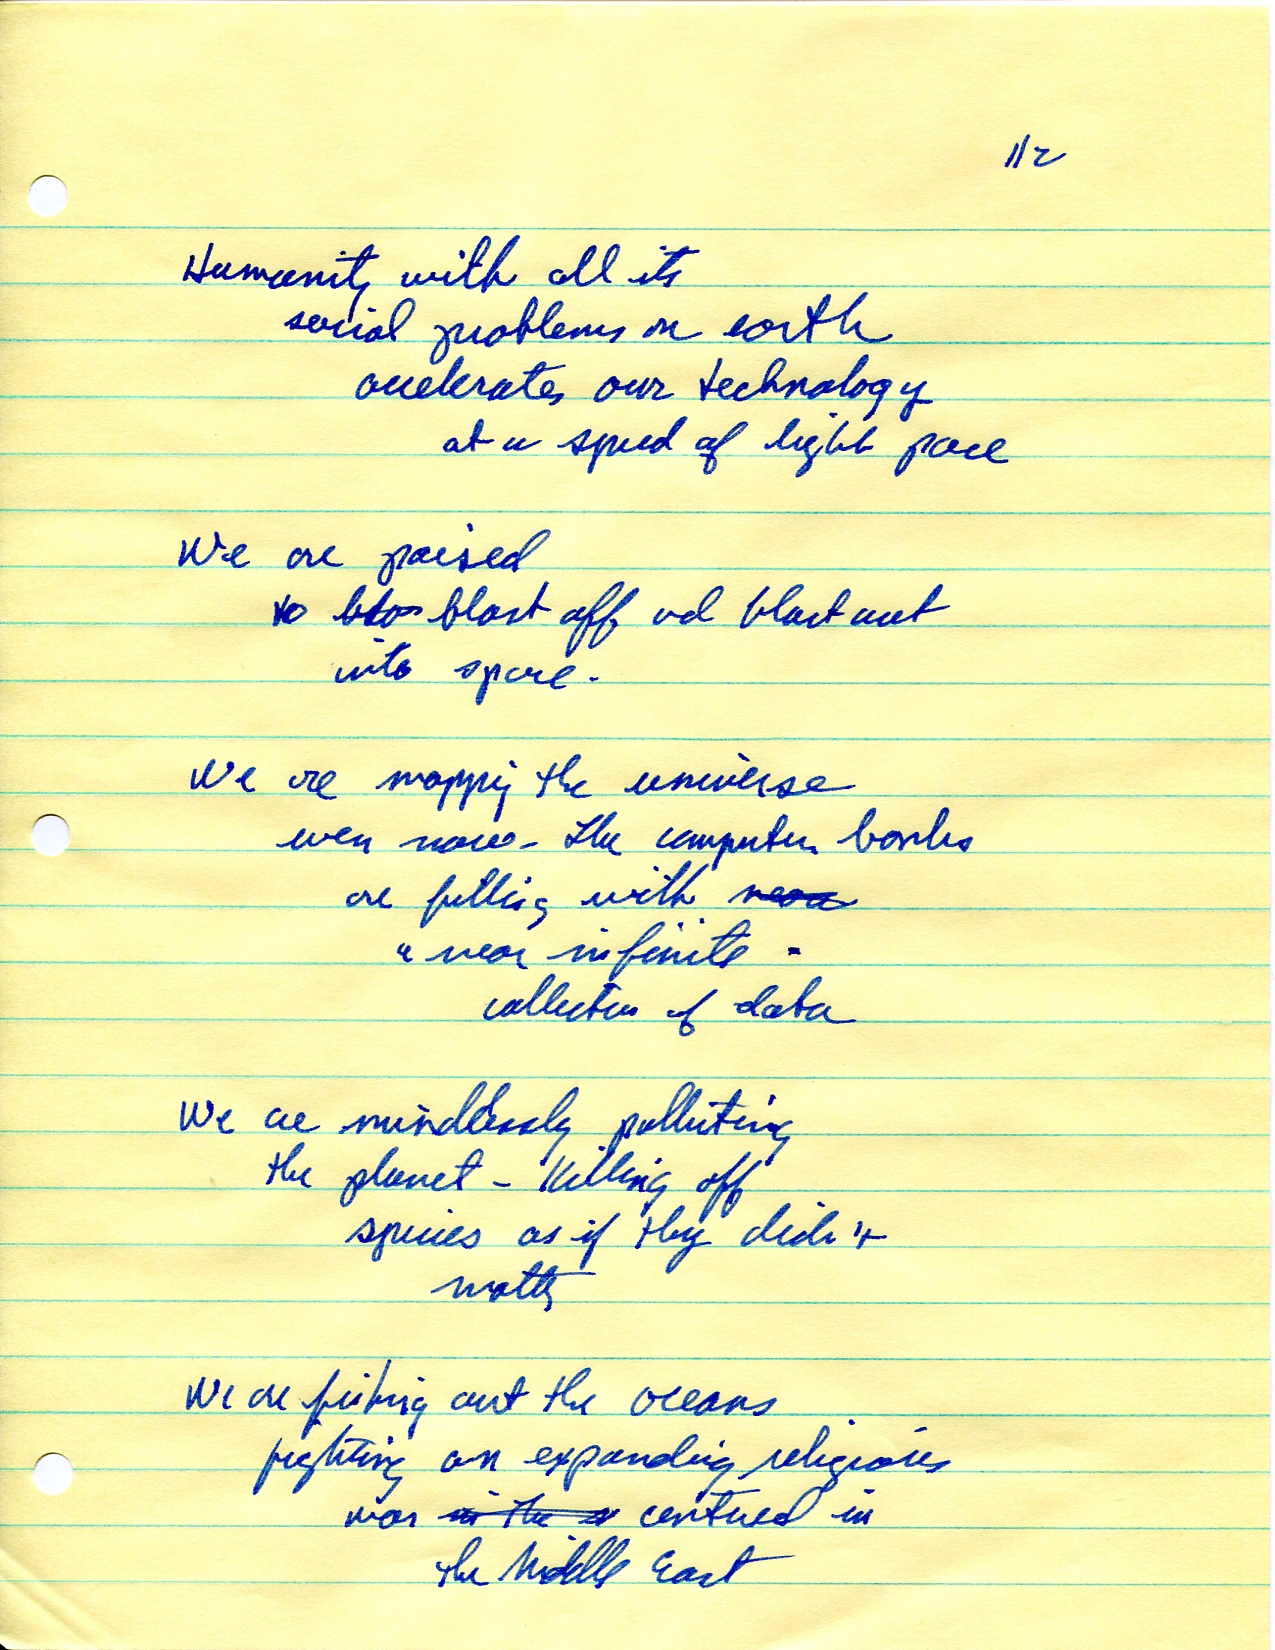 1/2
Humanity with all its
social problems on earth
accelerates our technology
at a speed of light pace
We are poised
to blast off and blast out
into space.
We are mapping the universe
even now - the computer banks
are filling with near
a near infinite -
collection of data
We are mindlessly polluting
the planet - killing off
species as if they didn't
matter
We are fishing out the oceans
fighting an expanding religious
war in the centered in
the Middle East